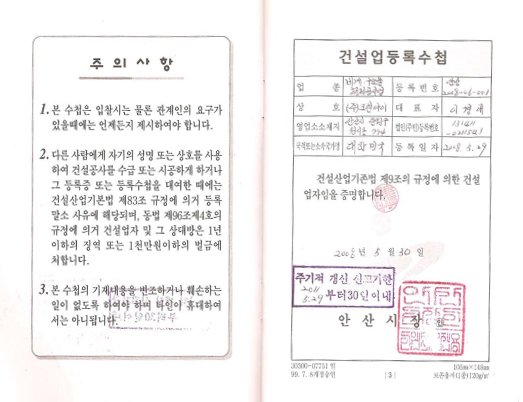 주 의 사 항
1. 본 수첩은 입찰시는 물론 관계인의 요구가
있을때에는 언제든지 제시하여야 합니다.
2. 다른 사람에게 자기의 성명 또는 상호를 사용
하여 건설공사를 수급 또는 시공하게 하거나
그 등록증 또는 등록수첩을 대여한 때에는
건설산업기본법 제83조 규정에 의거 등록
말소 사유에 해당되며, 동법 제96조제4호의
규정에 의거 건설업자 및 그 상대방은 1년
이하의 징역 또는 1천만원이하의 벌금에
처합니다.
3. 본 수첩의 기재내용을 변조하거나 훼손하는
일이 없도록 하여야 하며 타인이 휴대하여
서는 아니됩니다.
건설업등록수첩
업 종
등 록 번 호
상 호
대 표 자
영업소소재지
법인(주민)등록번호
국적또는소속국가명 대한민국 등 록 일 자 2008. 5. 29
건설산업기본법 제9조의 규정에 의한 건설
업자임을 증명합니다.
2008년 5월 30일
주기적 갱신 신고기한
2011
5.29 부터30일이내
안 산 시 장
30300-07751일
99. 7. 8개정승인
[ 3 ]
106㎜×148㎜